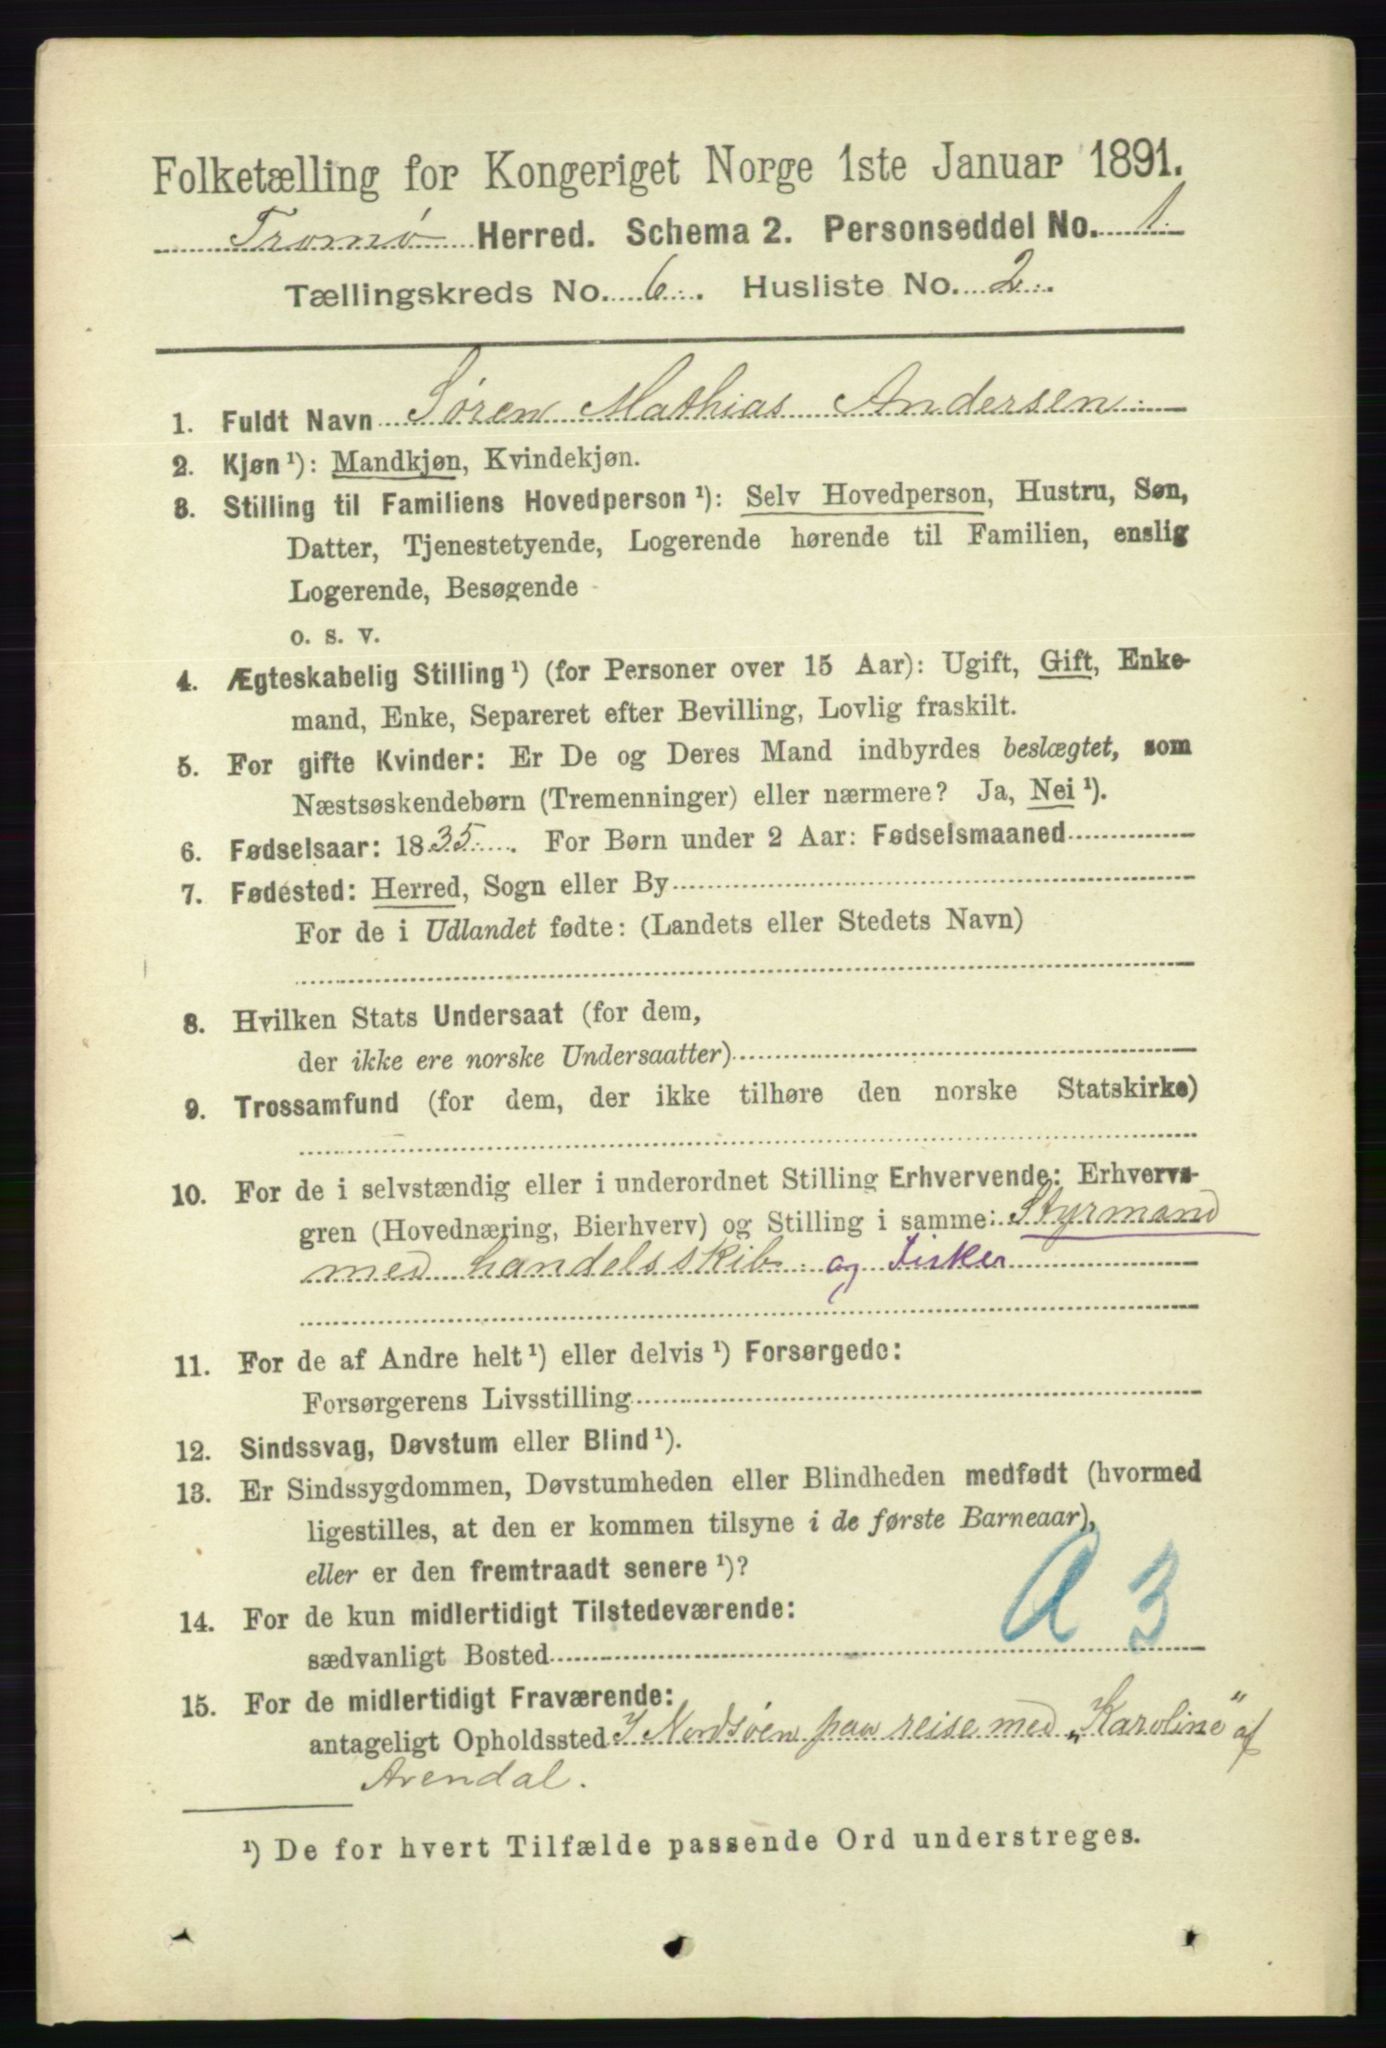 Folketælling for Kongeriget Norge 1ste Januar 1891.
Tromø Herred. Schema 2. Personseddel No. 1.
Tællingskreds No. 6. Husliste No. 2.
1. Fuldt Navn Søren Mathias Andersen
2. Kjøn ¹): Mandkjøn, Kvindekjøn.
3. Stilling til Familiens Hovedperson ¹): Selv Hovedperson, Hustru, Søn,
Datter, Tjenestetyende, Logerende hørende til Familien, enslig
Logerende, Besøgende
o. s. v.
4. Ægteskabelig Stilling ¹) (for Personer over 15 Aar): Ugift, Gift, Enke-
mand, Enke, Separeret efter Bevilling, Lovlig fraskilt.
5. For gifte Kvinder: Er De og Deres Mand indbyrdes beslægtet, som
Næstsøskendebørn (Tremenninger) eller nærmere? Ja, Nei ¹).
6. Fødselsaar: 1835. For Børn under 2 Aar: Fødselsmaaned
7. Fødested: Herred, Sogn eller By
For de i Udlandet fødte: (Landets eller Stedets Navn)
8. Hvilken Stats Undersaat (for dem,
der ikke ere norske Undersaatter)
9. Trossamfund (for dem, der ikke tilhøre den norske Statskirke)
10. For de i selvstændig eller i underordnet Stilling Erhvervende: Erhvervs-
gren (Hovednæring, Bierhverv) og Stilling i samme: Styrmand
med handelsskib. og Fisker
11. For de af Andre helt ¹) eller delvis ¹) Forsørgede:
Forsørgerens Livsstilling
12. Sindssvag, Døvstum eller Blind ¹).
13. Er Sindssygdommen, Døvstumheden eller Blindheden medfødt (hvormed
ligestilles, at den er kommen tilsyne i de første Barneaar),
eller er den fremtraadt senere ¹)?
A 3
14. For de kun midlertidigt Tilstedeværende:
sædvanligt Bosted
15. For de midlertidigt Fraværende:
antageligt Opholdssted I Nordsøen paa reise med „Karoline" af
Arendal.
¹) De for hvert Tilfælde passende Ord understreges.